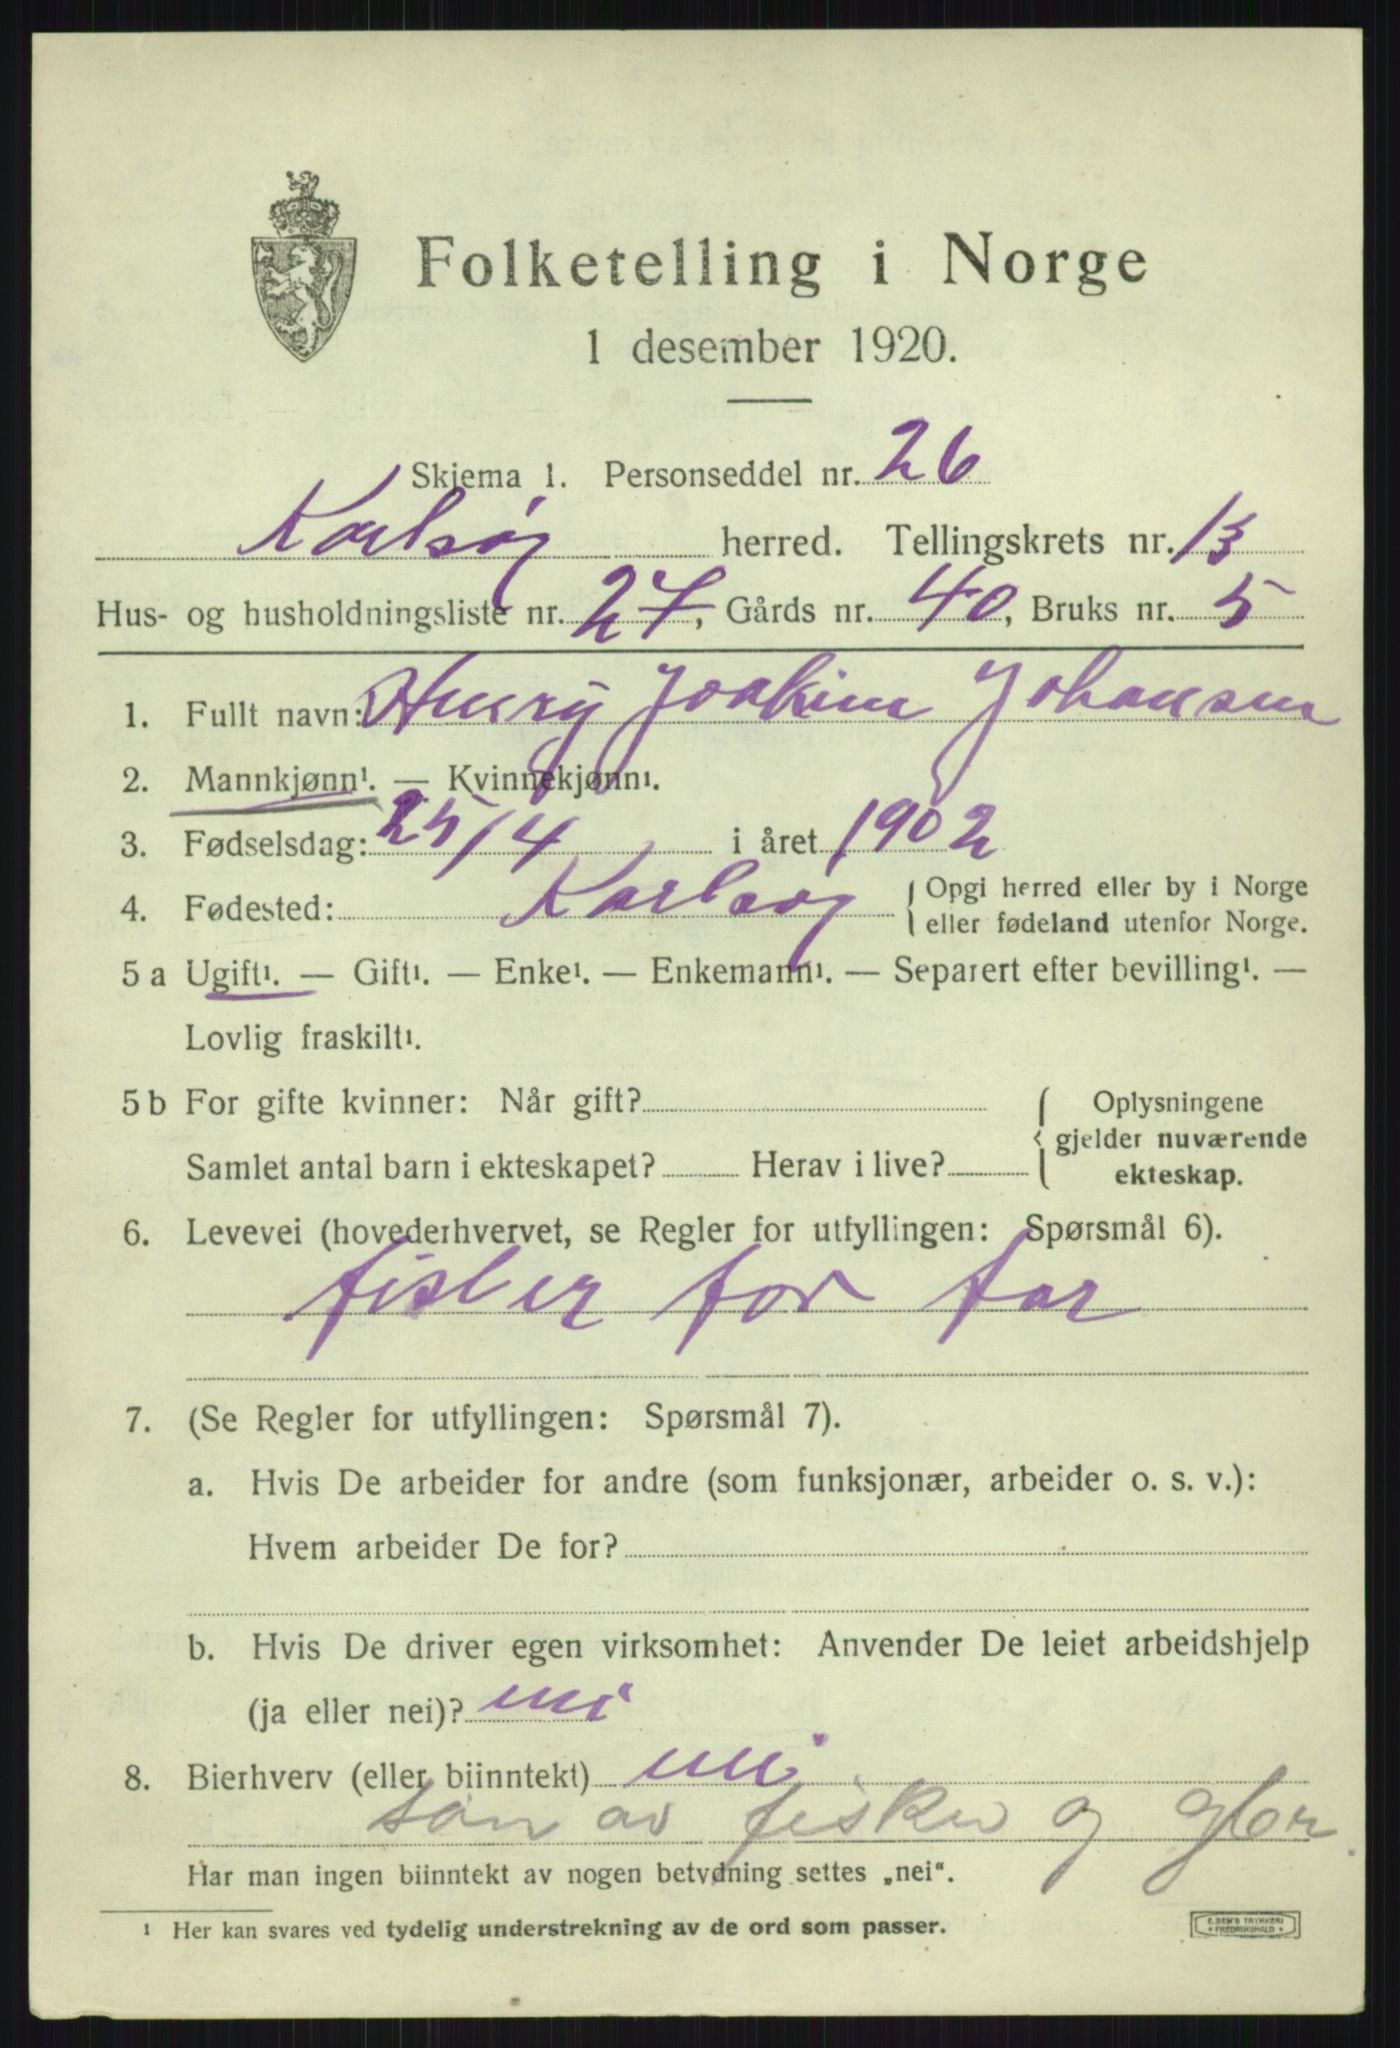 Folketelling i Norge
1 desember 1920.
Skjema 1. Personseddel nr. 26
Karlsøy herred. Tellingskrets nr. 13
Hus- og husholdningsliste nr. 27, Gårds nr. 40, Bruks nr. 5
1. Fullt navn: Henry Joakim Johansen
2. Mannkjønn¹. — Kvinnekjønn¹.
3. Fødselsdag: 25/4 i året 1902
4. Fødested: Karlsøy { Opgi herred eller by i Norge
eller fødeland utenfor Norge.
5 a Ugift¹. — Gift¹. — Enke¹. — Enkemann¹. — Separert efter bevilling¹. —
Lovlig fraskilt¹.
5 b For gifte kvinner: Når gift? { Oplysningene
gjelder nuværende
Samlet antal barn i ekteskapet? Herav i live? ekteskap.
6. Levevei (hovederhvervet, se Regler for utfyllingen: Spørsmål 6).
fisker for far
7. (Se Regler for utfyllingen: Spørsmål 7).
a. Hvis De arbeider for andre (som funksjonær, arbeider o. s. v.):
Hvem arbeider De for?
b. Hvis De driver egen virksomhet: Anvender De leiet arbeidshjelp
(ja eller nei)? nei
8. Bierhverv (eller biinntekt) nei
søn av fisker og
Har man ingen biinntekt av nogen betydning settes „nei“.
¹ Her kan svares ved tydelig understrekning av de ord som passer.
E. SEM'S TRYKKERI
FREDRIKSHALD